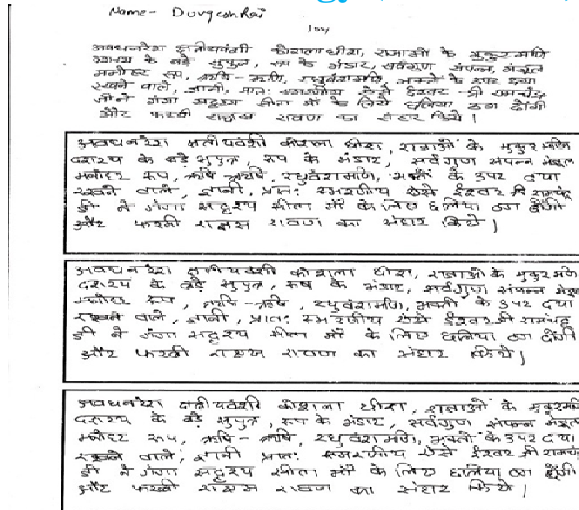 Name - Durgesh Rai
अवधनरेश क्षत्रीयवंशी कौशला धीश, राजाओं के मुकुटमणि
दशरथ के बड़े सुपुत्र, रूप के भंडार, सर्वगुण संपन्न,
मनोहर रूप, रघुवंशमणि, भक्तो के उपर दया
रखने वाले, ज्ञानी, प्रातः स्मरणीय ऐसे ईश्वर श्री रामचंद्र
जी ने गंगा सदृश्य सीता माँ के लिए छलिया ठग ढोंगी
और पाखंडी राक्षस रावण का संहार किये।
अवधनरेश क्षत्रीयवंशी कौशला धीश, राजाओं के मुकुटमणि
दशरथ के बड़े सुपुत्र, रूप के भंडार, सर्वगुण संपन्न
मनोहर रूप, रघुवंशमणि, भक्तो के उपर दया
रखने वाले, ज्ञानी, प्रातः स्मरणीय ऐसे ईश्वर श्री रामचंद्र
जी ने गंगा सदृश्य सीता माँ के लिए छलिया ठग ढोंगी
और पाखंडी राक्षस रावण का संहार किये।
अवधनरेश क्षत्रीयवंशी कौशला धीश, राजाओं के मुकुटमणि
दशरथ के बड़े सुपुत्र, रूप के भंडार, सर्वगुण संपन्न
मनोहर रूप, रघुवंशमणि, भक्तो के उपर दया
रखने वाले, ज्ञानी, प्रातः स्मरणीय ऐसे ईश्वर श्री रामचंद्र
जी ने गंगा सदृश्य सीता माँ के लिए छलिया ठग ढोंगी
और पाखंडी राक्षस रावण का संहार किये।
अवधनरेश क्षत्रीयवंशी कौशला धीश, राजाओं के मुकुटमणि
दशरथ के बड़े सुपुत्र, रूप के भंडार, सर्वगुण संपन्न
मनोहर रूप, रघुवंशमणि, भक्तो के उपर दया
रखने वाले, ज्ञानी प्रातः स्मरणीय ऐसे ईश्वर श्री रामचंद्र
जी ने गंगा सदृश्य सीता माँ के लिए छलिया ठग ढोंगी
और पाखंडी राक्षस रावण का संहार किये।